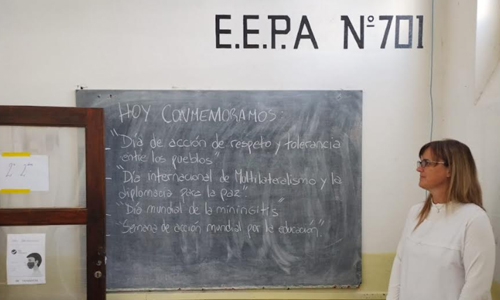 E.E.P.A Nº701
HOY CONMEMORAMOS:
"Día de acción de respeto y tolerancia
entre los pueblos"
"Día internacional de Multilateralismo y la
diplomacia para la paz"
"Día mundial de la mininsitis
"Semana de acción mundial por la educación"